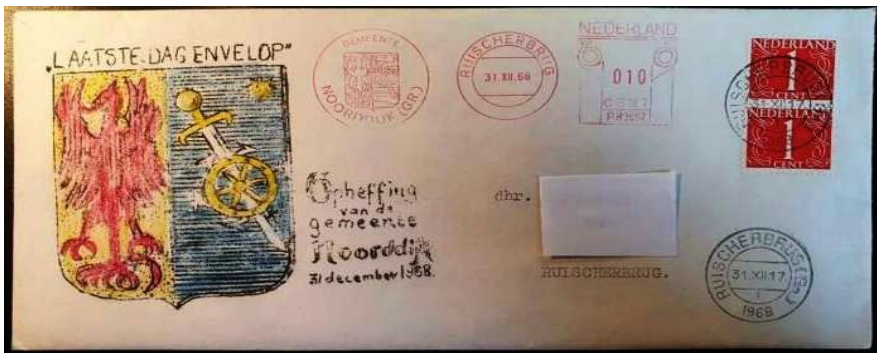 „LAATSTE DAG ENVELOP"
GEMEENTE
NOORDDIJK (GR)
RUISCHERBRUG
31.XII.68
NEDERLAND
010
CENT
NEDERLAND
1
CENT
NEDERLAND
1
CENT
Opheffing
van de
gemeente
Noorddijk
31 december 1968.
dhr.
RUISCHERBRUG.
RUISCHERBRUG (Gn.)
31.XII.17
1968